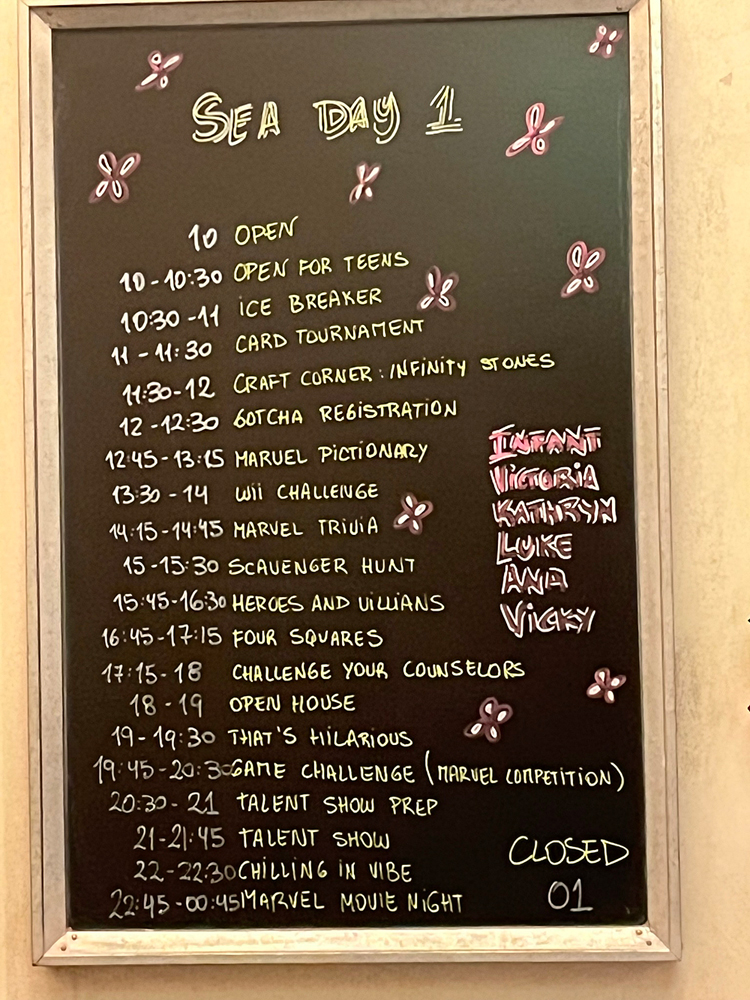 SEA DAY 1
10 OPEN
10-10:30 OPEN FOR TEENS
10:30-11 ICE BREAKER
11-11:30 CARD TOURNAMENT
11:30-12 CRAFT CORNER: INFINITY STONES
12-12:30 GOTCHA REGISTRATION
12:45-13:15 MARVEL PICTIONARY
13:30-14 WII CHALLENGE
14:15-14:45 MARVEL TRIVIA
15-15:30 SCAVENGER HUNT
15:45-16:30 HEROES AND VILLIANS
16:45-17:15 FOUR SQUARES
17:15-18 CHALLENGE YOUR COUNSELORS
18-19 OPEN HOUSE
19-19:30 THAT'S HILARIOUS
19:45-20:30 GAME CHALLENGE (MARVEL COMPETITION)
20:30-21 TALENT SHOW PREP
21-21:45 TALENT SHOW
22-22:30 CHILLING IN VIBE
22:45-00:45 MARVEL MOVIE NIGHT
INFANT
VICTORIA
KATHRYN
LUKE
AND
VICKY
CLOSED
01